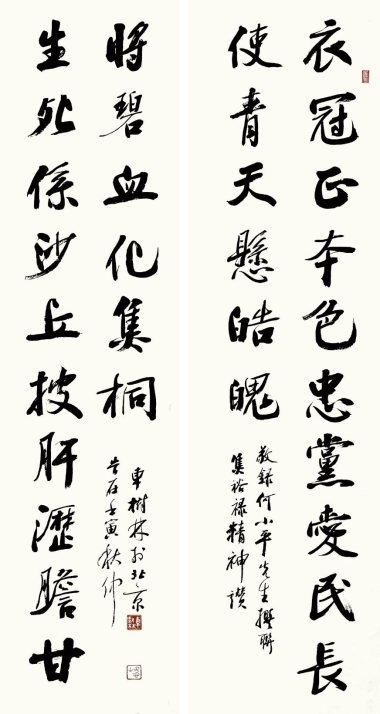 衣冠正本色忠黨愛民長
使青天懸皓魄
敬録何小平先生撰聯
焦裕禄精神讚
生死係沙丘披肝瀝膽甘
將碧血化焦桐
車樹林於北京
岁在壬寅秋仲